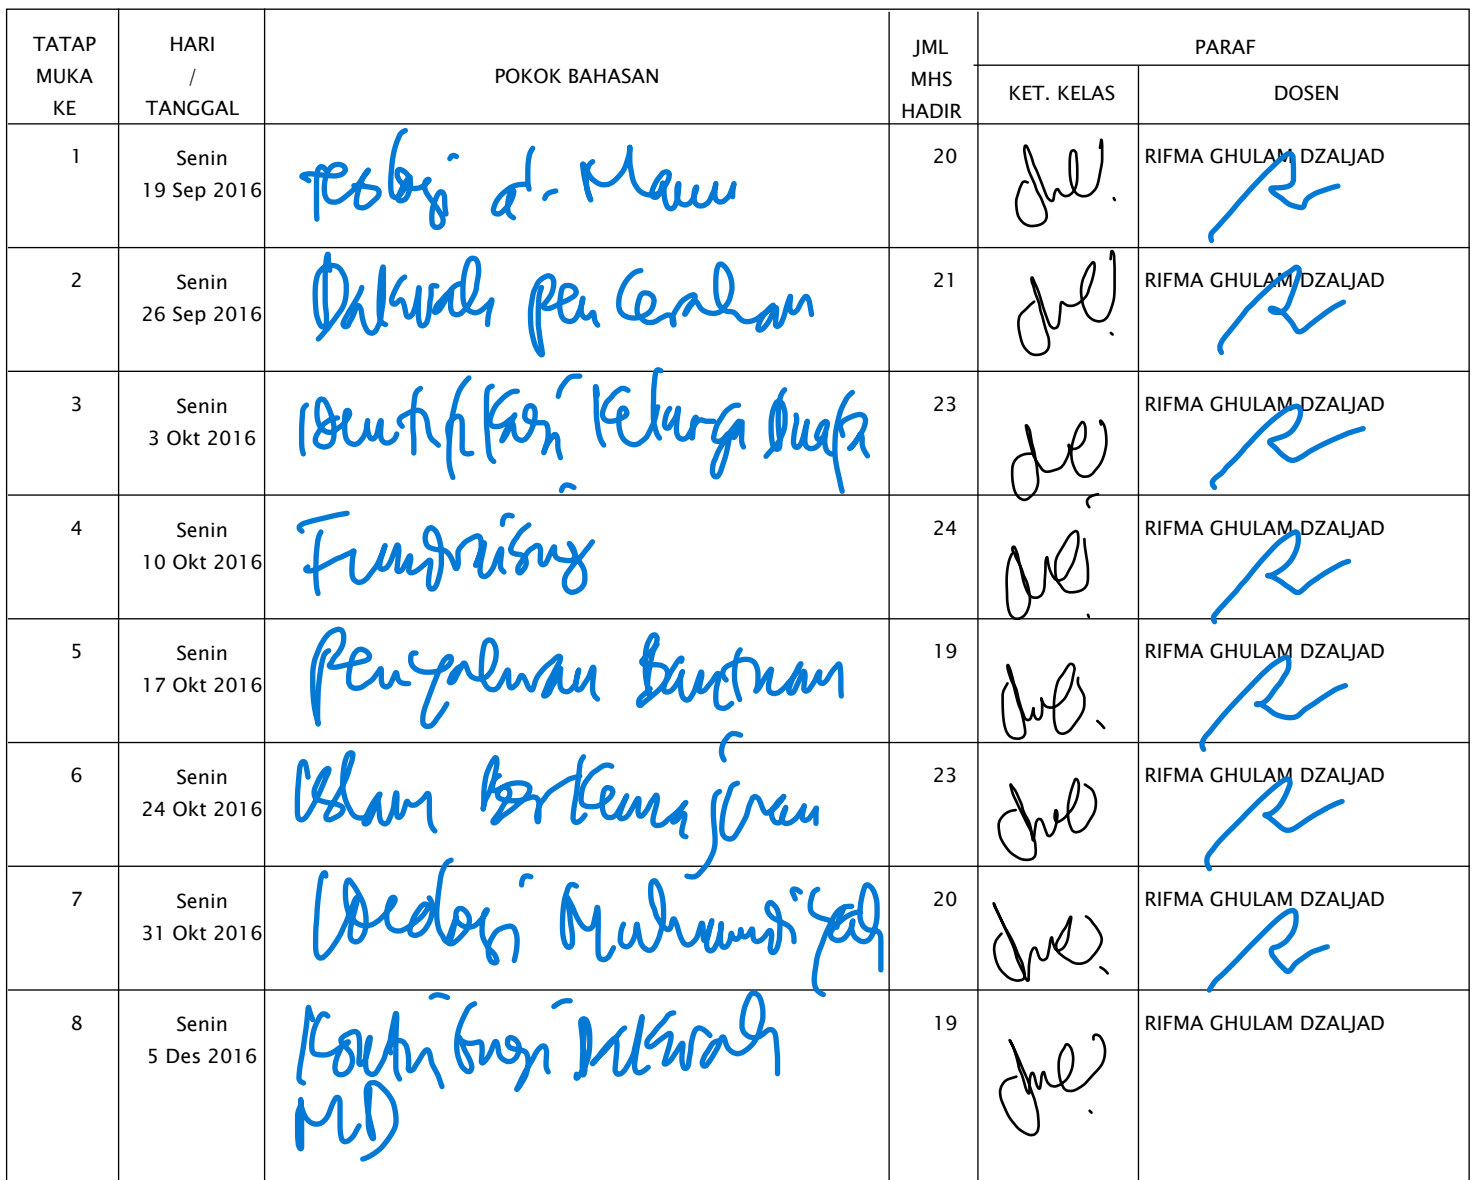 TATAP MUKA KE HARI / TANGGAL POKOK BAHASAN JML MHS HADIR PARAF
KET. KELAS DOSEN
1 Senin 19 Sep 2016 Teologi al-Maun 20 RIFMA GHULAM DZALJAD
2 Senin 26 Sep 2016 Dakwah pencerahan 21 RIFMA GHULAM DZALJAD
3 Senin 3 Okt 2016 Identifikasi Keluarga Duafa 23 RIFMA GHULAM DZALJAD
4 Senin 10 Okt 2016 Fundraising 24 RIFMA GHULAM DZALJAD
5 Senin 17 Okt 2016 Penyaluran Bantuan 19 RIFMA GHULAM DZALJAD
6 Senin 24 Okt 2016 Islam Berkemajuan 23 RIFMA GHULAM DZALJAD
7 Senin 31 Okt 2016 Ideologi Muhammadiyah 20 RIFMA GHULAM DZALJAD
8 Senin 5 Des 2016 Kontribusi Dakwah 19 RIFMA GHULAM DZALJAD
MD